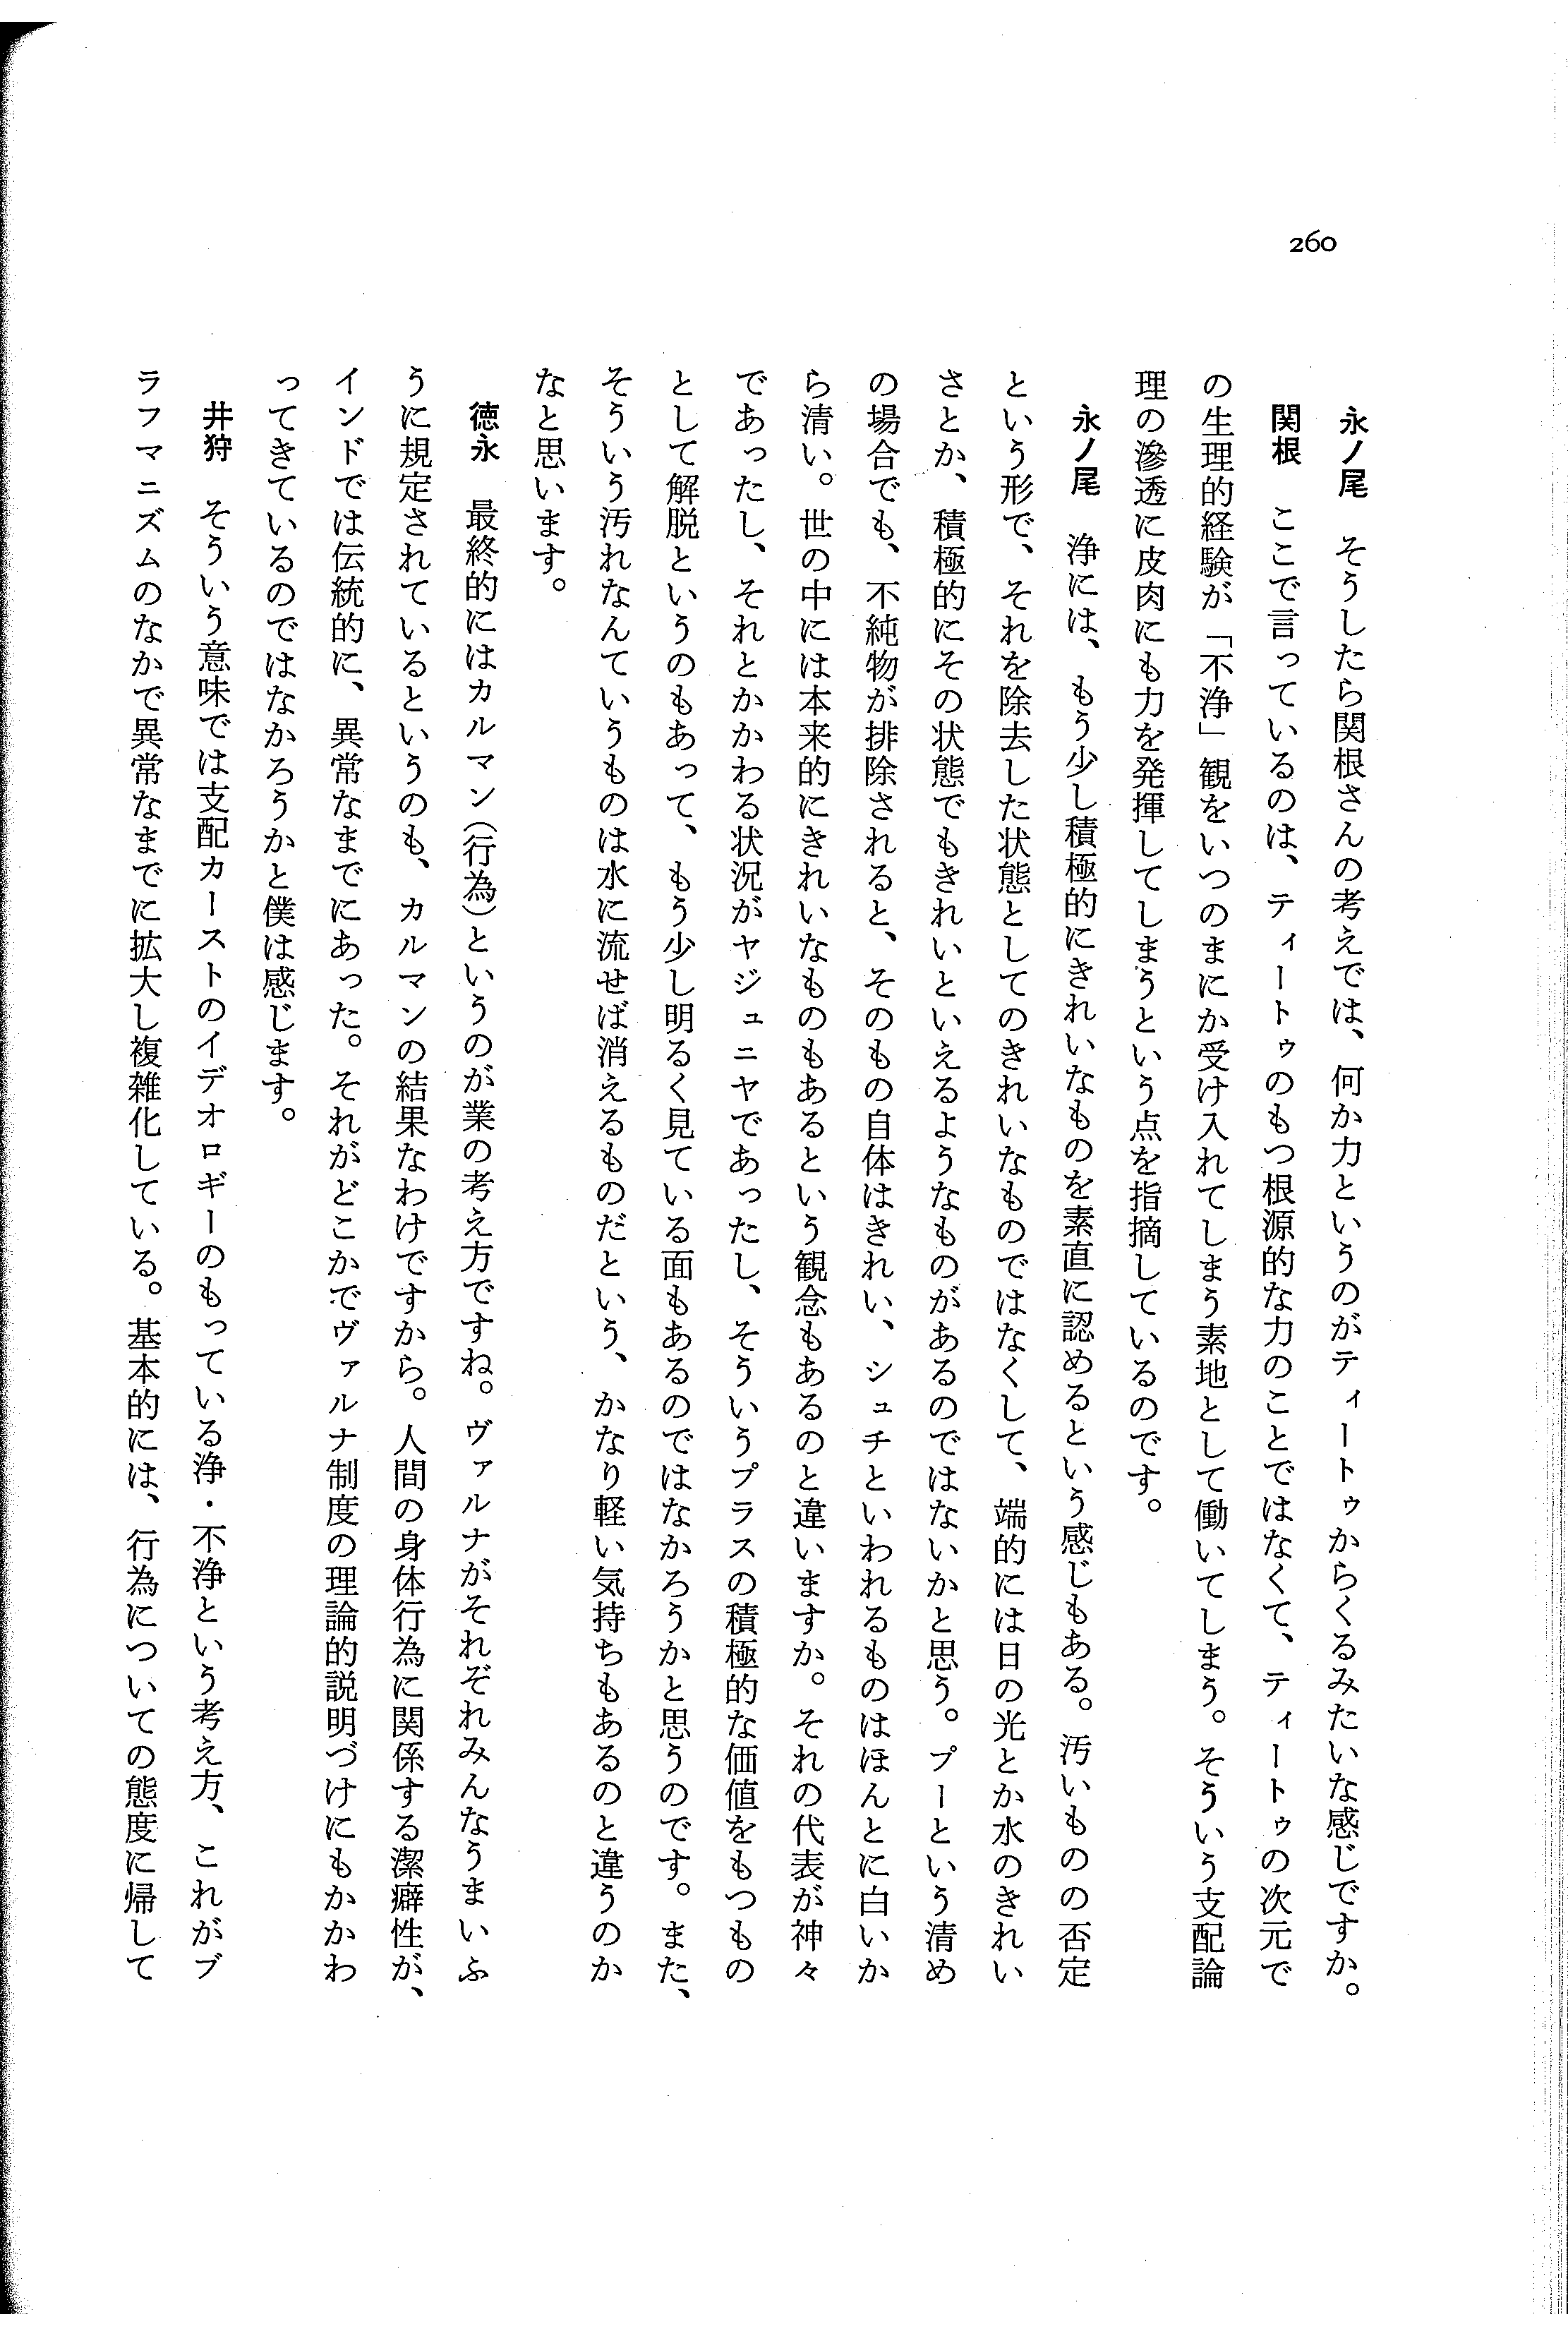 260
永ノ尾　そうしたら関根さんの考えでは、何か力というのがティートゥからくるみたいな感じですか。
関根　ここで言っているのは、ティートゥのもつ根源的な力のことではなくて、ティートゥの次元で
の生理的経験が「不浄」観をいつのまにか受け入れてしまう素地として働いてしまう。そういう支配論
理の滲透に皮肉にも力を発揮してしまうという点を指摘しているのです。
永ノ尾　浄には、もう少し積極的にきれいなものを素直に認めるという感じもある。汚いものの否定
という形で、それを除去した状態としてのきれいなものではなくして、端的には日の光とか水のきれい
さとか、積極的にその状態でもきれいといえるようなものがあるのではないかと思う。プーという清め
の場合でも、不純物が排除されると、そのもの自体はきれい、シュチといわれるものはほんとに白いか
ら清い。世の中には本来的にきれいなものもあるという観念もあるのと違いますか。それの代表が神々
であったし、それとかかわる状況がヤジュニヤであったし、そういうプラスの積極的な価値をもつもの
として解脱というのもあって、もう少し明るく見ている面もあるのではなかろうかと思うのです。また、
そういう汚れなんていうものは水に流せば消えるものだという、かなり軽い気持ちもあるのと違うのか
なと思います。
徳永　最終的にはカルマン（行為）というのが業の考え方ですね。ヴァルナがそれぞれみんなうまいふ
うに規定されているというのも、カルマンの結果なわけですから。人間の身体行為に関係する潔癖性が、
インドでは伝統的に、異常なまでにあった。それがどこかでヴァルナ制度の理論的説明づけにもかかわ
ってきているのではなかろうかと僕は感じます。
井狩　そういう意味では支配カーストのイデオロギーのもっている浄・不浄という考え方、これがブ
ラフマニズムのなかで異常なまでに拡大し複雑化している。基本的には、行為についての態度に帰して